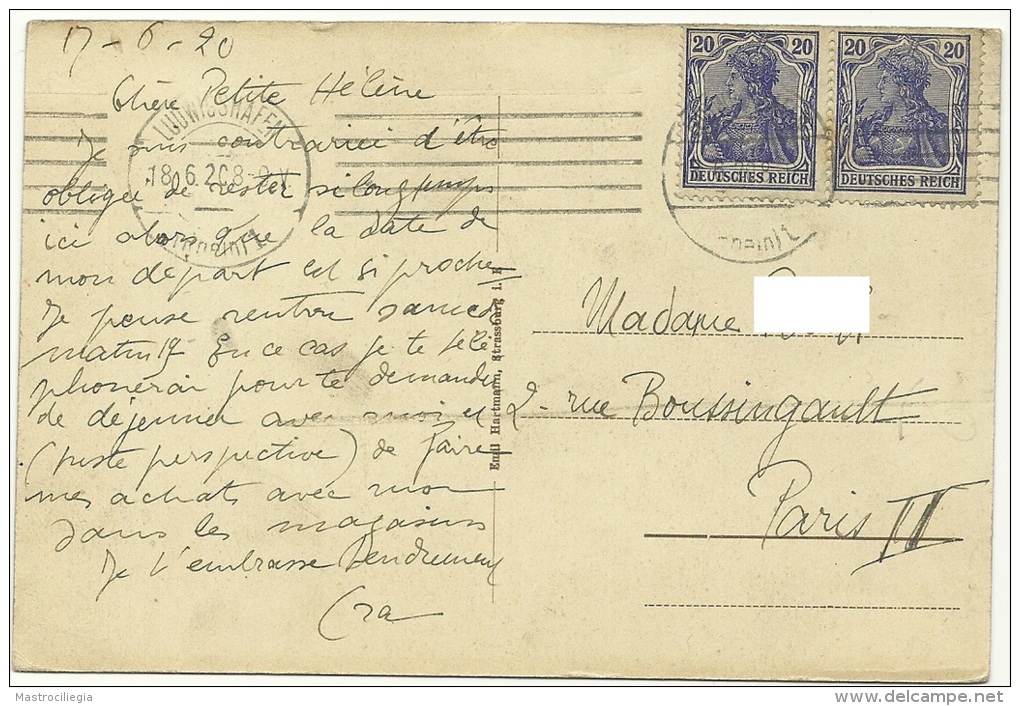 17-6-20
Chère Petite Hélène
Je suis contrariée d'être
obligée de rester si longtemps
ici alors que la date de
mon départ est si proche
Je pense rentrer samedi
matin 19 En ce cas je te télé
phonerai pour te demander
de déjeuner avec moi et
(triste perspective) de faire
mes achats avec moi
dans les magasins
Je t'embrasse tendrement
LUDWIGSHAFEN
18.6.20.8-9 V
(Rhein) 1
20 20
DEUTSCHES REICH
20 20
DEUTSCHES REICH
(Rhein) 1
Emil Hartmann, Strassburg i. E
Madame
2 - rue Boussingault
Paris
Mastrociliegia
www.delcampe.net